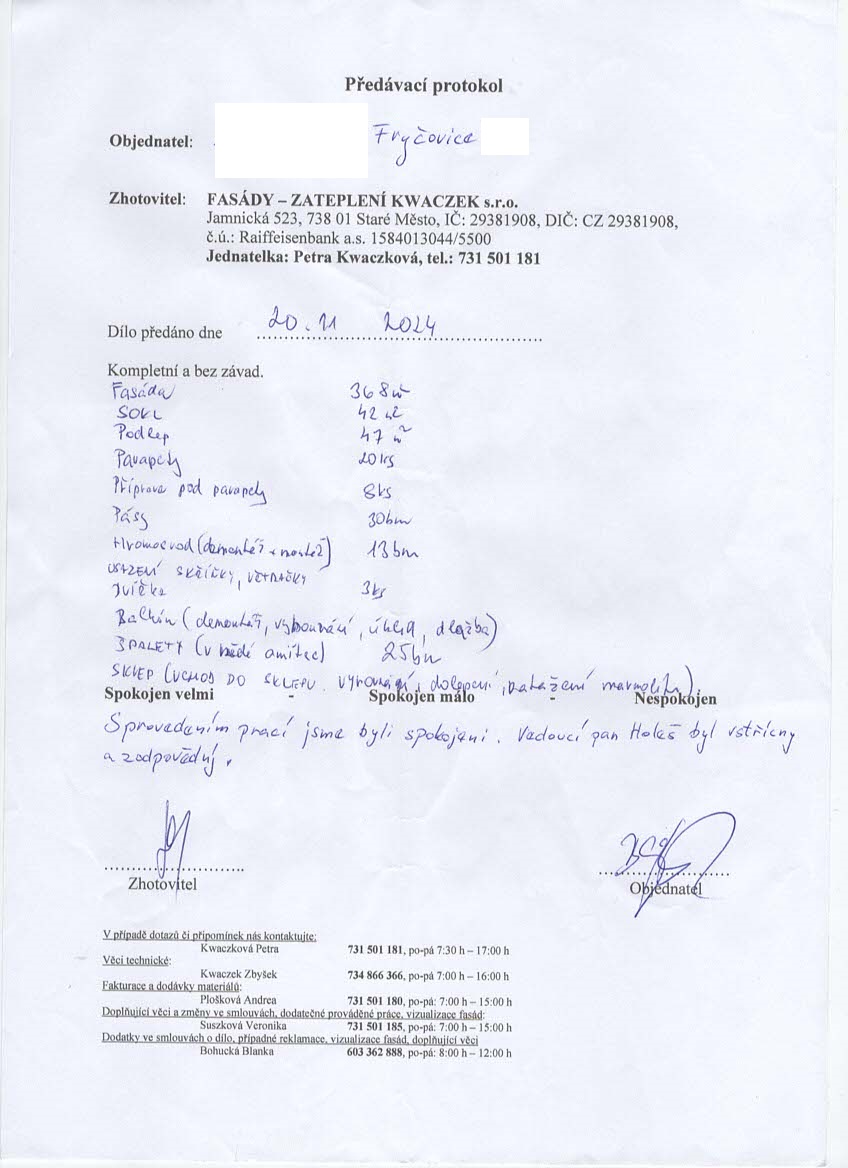 Předávací protokol
Objednatel: Fryčovice
Zhotovitel: FASÁDY – ZATEPLENÍ KWACZEK s.r.o.
Jamnická 523, 738 01 Staré Město, IČ: 29381908, DIČ: CZ 29381908,
č.ú.: Raiffeisenbank a.s. 1584013044/5500
Jednatelka: Petra Kwaczková, tel.: 731 501 181
Dílo předáno dne 20.11 2024
Kompletní a bez závad.
Fasáda 368 m²
SOKL 42 m²
Podlep 47 m²
Parapety 20 ks
Příprava pod parapety 8 ks
Pásy 30 bm
Hromosvod (demontáž + montáž) 13 bm
OSAZENÍ SKŘÍŇKY, VĚTRAČKY
3 ks
Balkón (demontáž, vybourání, dlažba)
ŠPALETY 25 bm
SKLEP (VCHOD DO SKLEPU. vyrovnání, dolepení, natažení marmolitu)
Spokojen velmi - Spokojen málo - Nespokojen
S provedením prací jsme byli spokojeni. Vedoucí pan Holeš byl vstřícný
a zodpovědný.
Zhotovitel Objednatel
V případě dotazů či připomínek nás kontaktujte:
Kwaczková Petra 731 501 181, po-pá 7:30 h – 17:00 h
Věci technické:
Kwaczek Zbyšek 734 866 366, po-pá 7:00 h – 16:00 h
Fakturace a dodávky materiálů:
Plošková Andrea 731 501 180, po-pá: 7:00 h – 15:00 h
Doplňující věci a změny ve smlouvách, dodatečné prováděné práce, vizualizace fasád:
Suszková Veronika 731 501 185, po-pá: 7:00 h – 15:00 h
Dodatky ve smlouvách o dílo, případné reklamace, vizualizace fasád, doplňující věci
Bohucká Blanka 603 362 888, po-pá: 8:00 h – 12:00 h